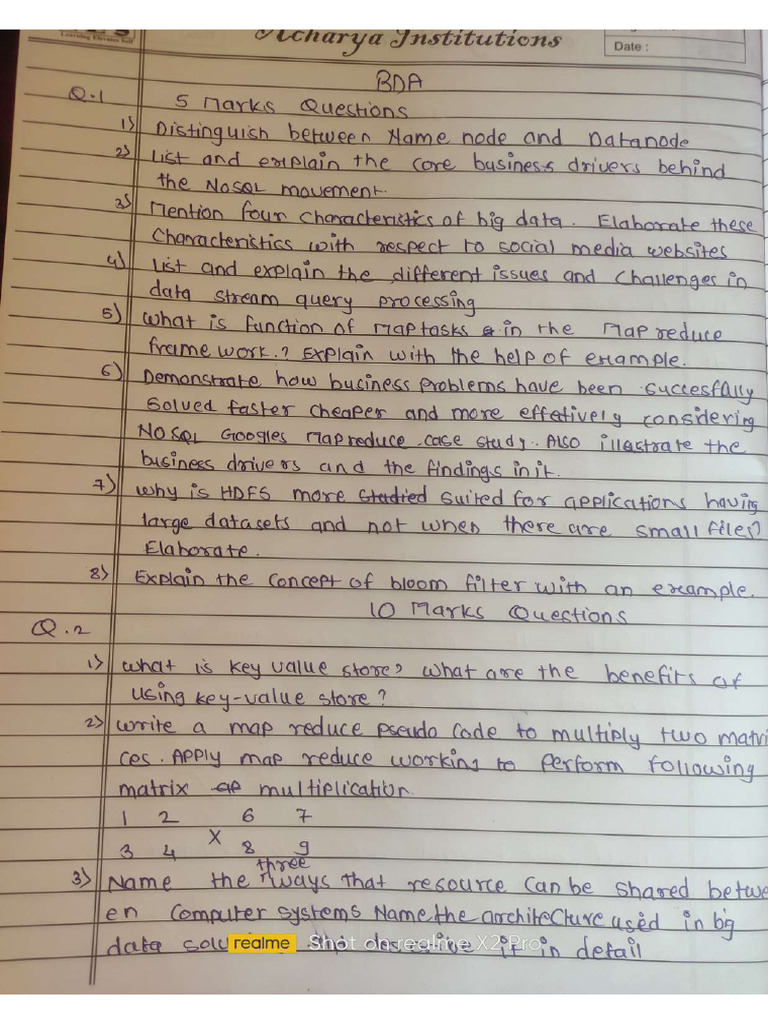 Learning Elevates Self
Acharya Institutions
Date :
BDA
Q.1 5 Marks Questions
1) Distinguish between Name node and Datanode
2) List and explain the core business drivers behind
the NOSQL movement.
3) Mention four characteristics of big data. Elaborate these
characteristics with respect to social media websites
4) List and explain the different issues and challenges in
data stream query processing
5) What is function of Map tasks in the Map reduce
frame work.? Explain with the help of example.
6) Demonstrate how business problems have been succesfally
solved faster cheaper and more effetively considering
NO SQL Googles Mapreduce case study. Also illustrate the
business drivers and the findings in it.
7) why is HDFS more studied suited for applications having
large datasets and not when there are small files?
Elaborate.
8) Explain the concept of bloom filter with an example.
10 Marks Questions
Q.2
1) what is key value store? what are the benefits of
using key-value store?
2) write a map reduce pseudo code to multiply two matri
ces. Apply map reduce working to perform following
matrix multiplication.
1 2 6 7
X
3 4 8 9
three
3) Name the ways that resource can be shared betwe
en computer systems Name the architecture used in big
data
realme Shot on realme X2 Pro
it in detail